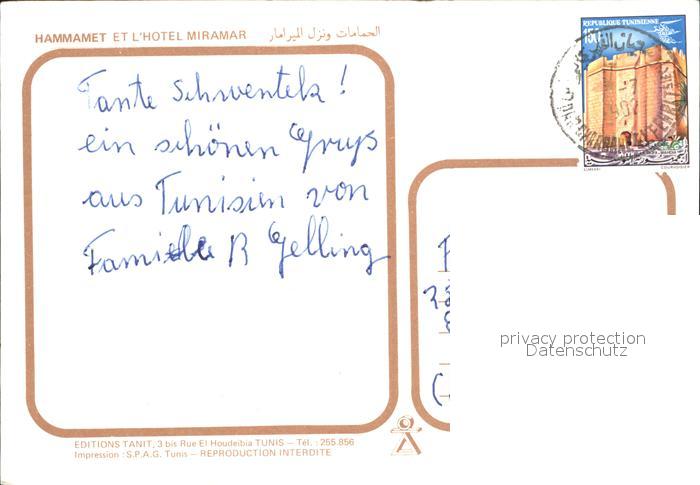 HAMMAMET ET L'HOTEL MIRAMAR الحمامات ونزل الميرامار
REPUBLIQUE TUNISIENNE
150
Tante Schwentek!
ein schönen Gruys
aus Tunisien von
Familie B Gelling
privacy protection
Datenschutz
EDITIONS TANIT, 3 bis Rue El Houdeibia TUNIS — Tél. : 255.856
Impression : S.P.A.G. Tunis — REPRODUCTION INTERDITE